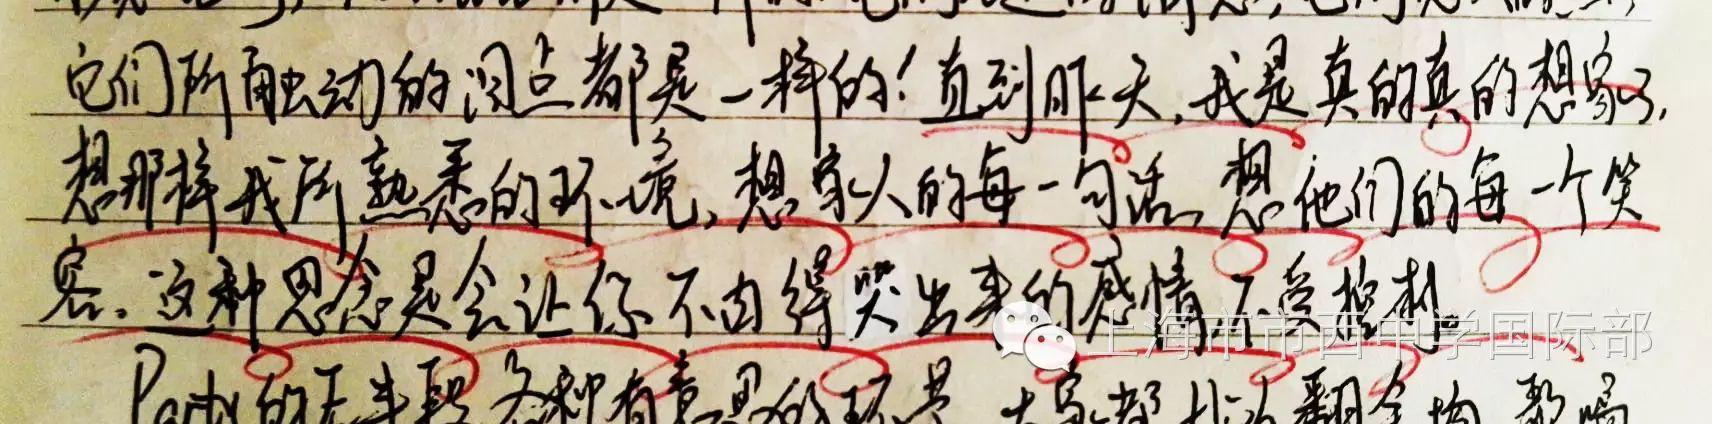 它们所触动的泪点都是一样的！直到昨天，我是真的真的想家了，
想那样我所熟悉的环境，想家人的每一句话，想他们的每一个笑
容。这种思念是会让你不由得哭出来的感情不受控制。
上海市市西中学国际部
Party的下半段各种有意思的环节，大家都